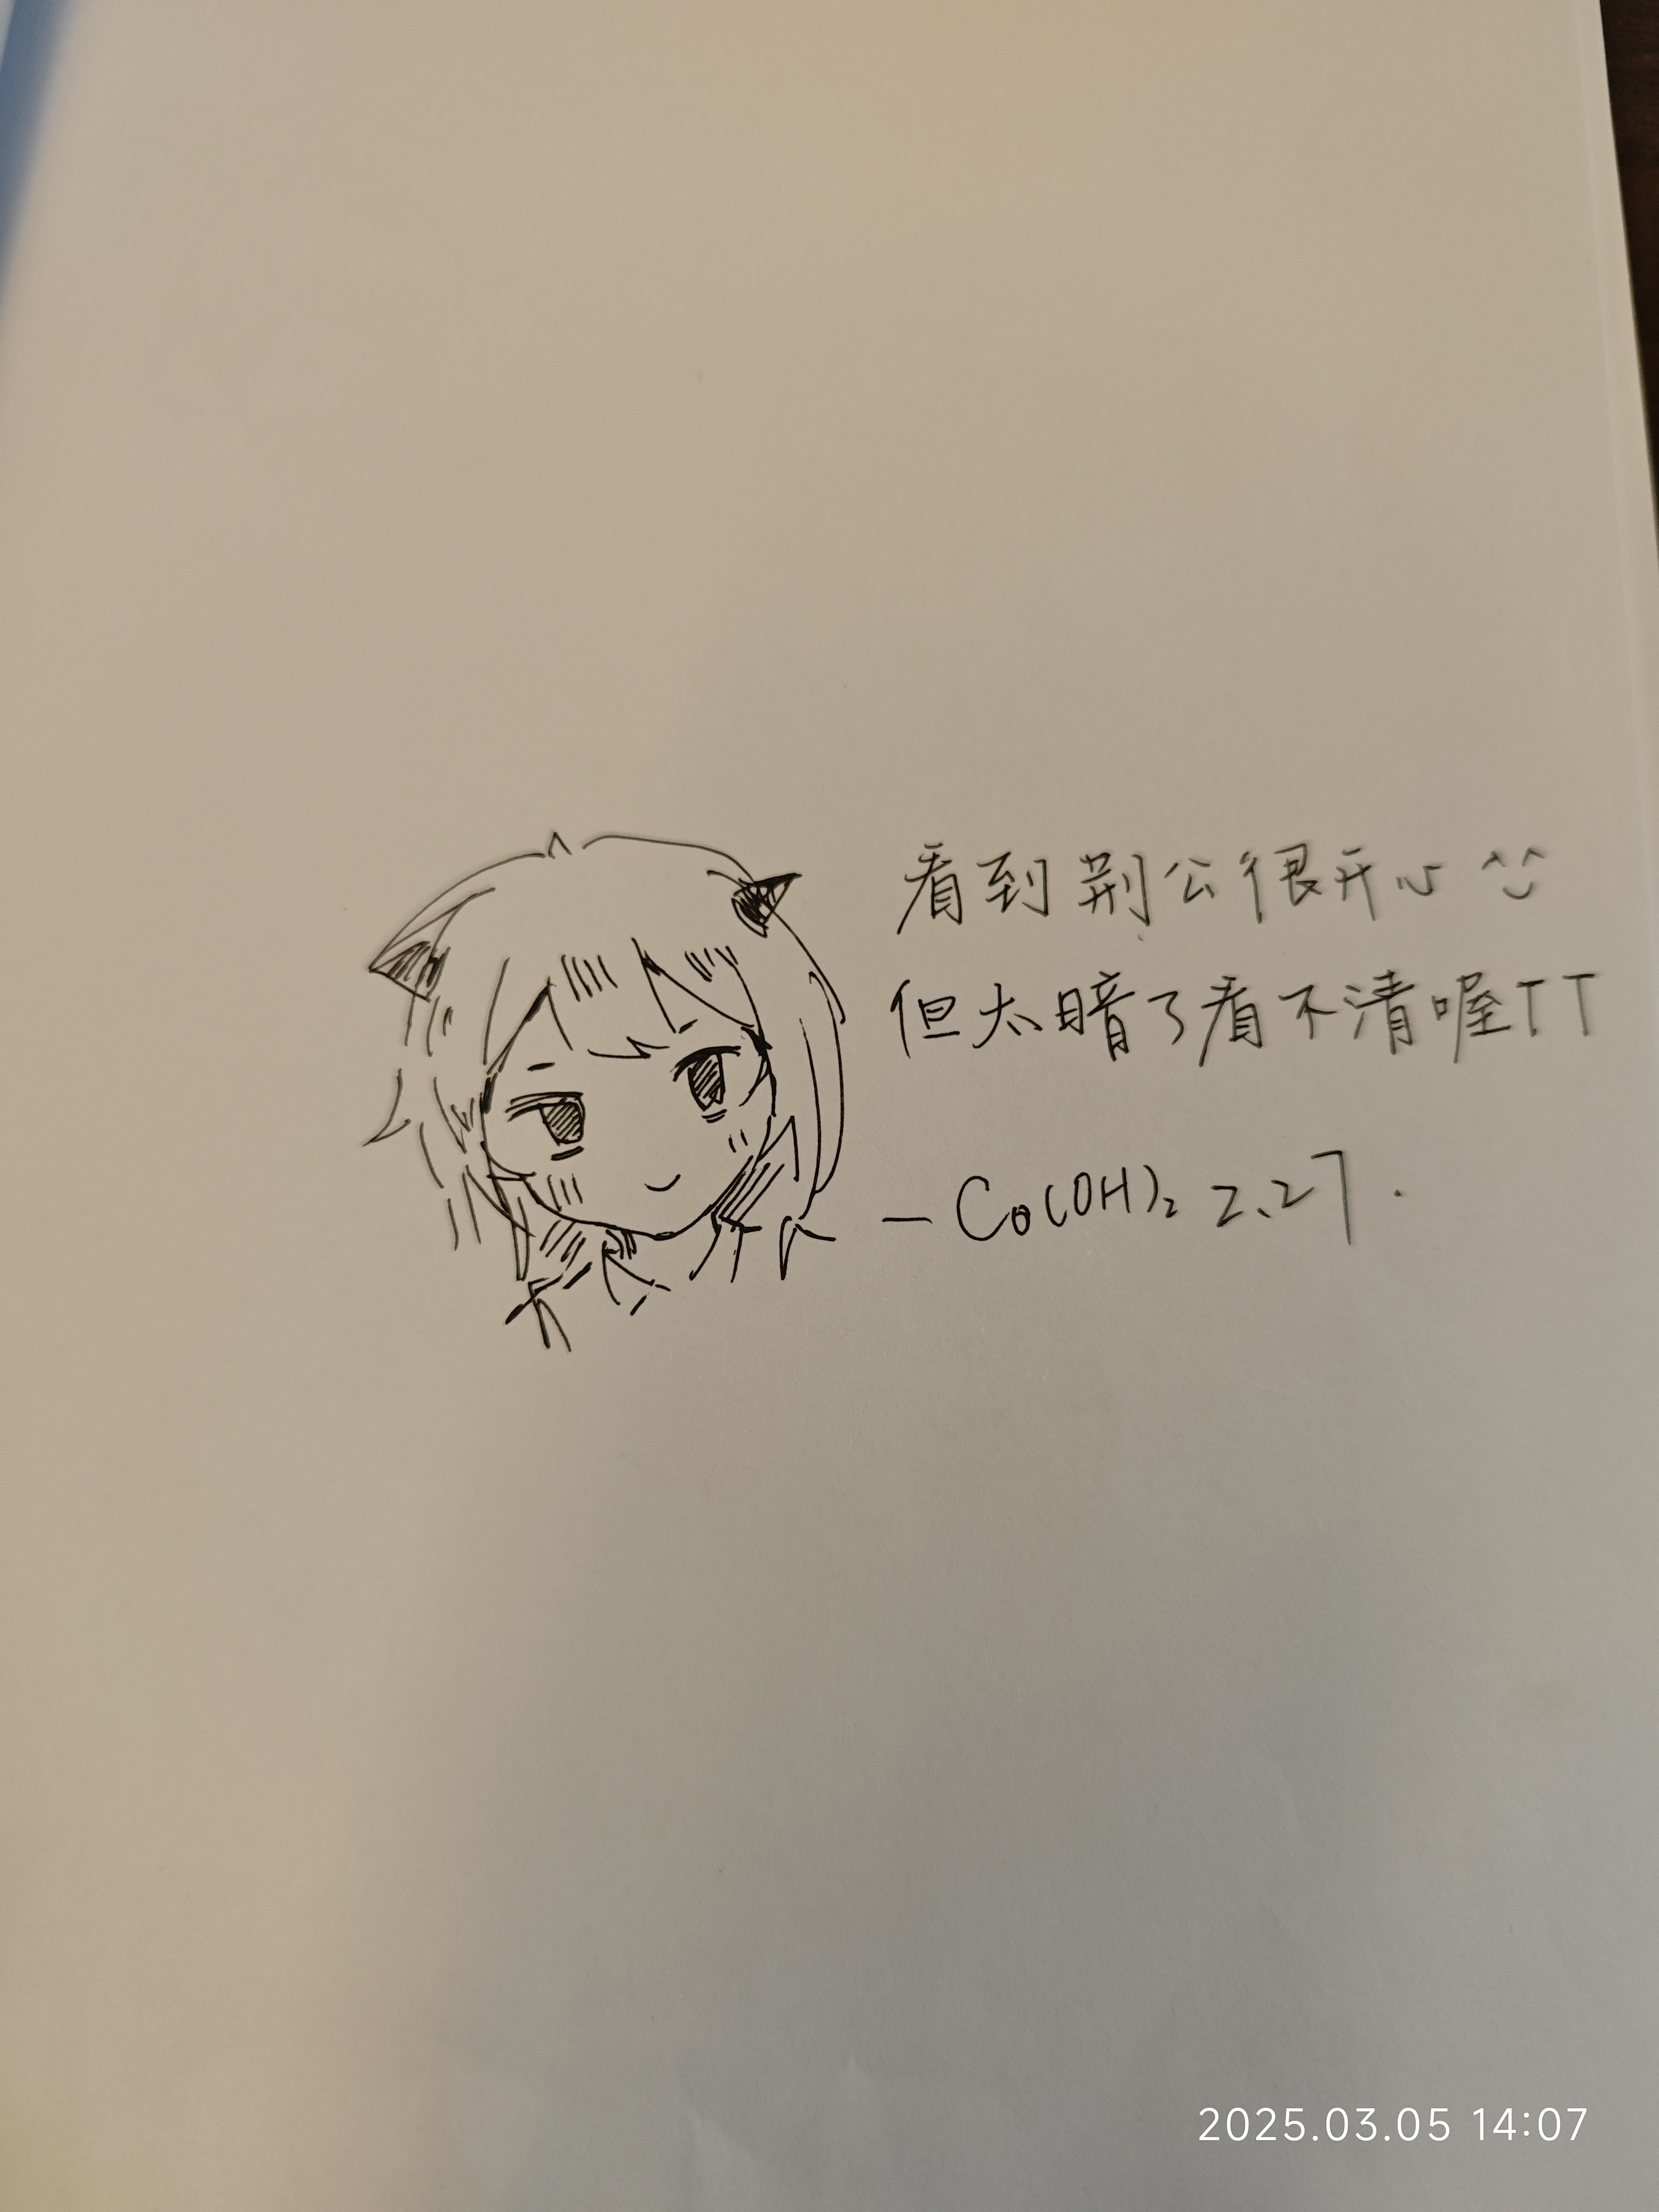 看到荆公很开心 ^^
但太暗了看不清喔TT
— Co(OH)₂ 2.27.
2025.03.05 14:07